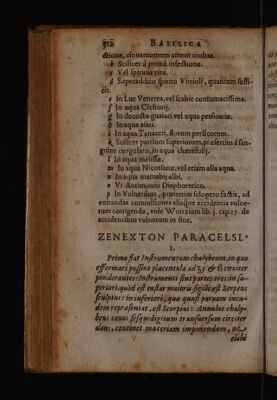 312 BASILICA
ctione, cinnamomum autem multas.
b Stillicet à prima infectione.
c Vel spiritus vini.
d Superaddito spiritu Vitrioli, quantum suffi-
cit.
e In Lue Venerea, vel scabie contumacissima.
f In aqua Cichorij.
g In decocto guaiaci vel aqua persicariæ.
h In aqua asari.
i In aqua Tanaceti, florum persicorum.
k Scilicet partium superiorum, præsertim à san-
guine coagulato, in aqua chærefolij.
l In aqua melissæ.
m In aqua Nicotianæ, vel etiam alia aqua.
n In aqua marrubij albi.
o Vt Antimonio Diaphoretico.
p In Vulneribus, præsertim sclopeto factis, ad
emendandas conuulsiones aliaque accidentia vulne-
rum corrigenda, vide Wurzium lib. 3. cap. 27. de
accidentibus vulnerum in fine.
ZENEXTON PARACELSI.
I.
Primo fiat Instrumentum chalybeum, in quo
efformari possint placentulæ ad
ponderantes: Instrumenti sint partes tres: in su-
periori, quod est instar maioris sigilli, est Serpens
sculptus: in inferiori, quæ quasi paruam incu-
dem repræsentat, est Scorpius: Annulus chaly-
beus cauus sesquidigitum transuersum circiter
altus, continet materiam imponendam, ne
elabi